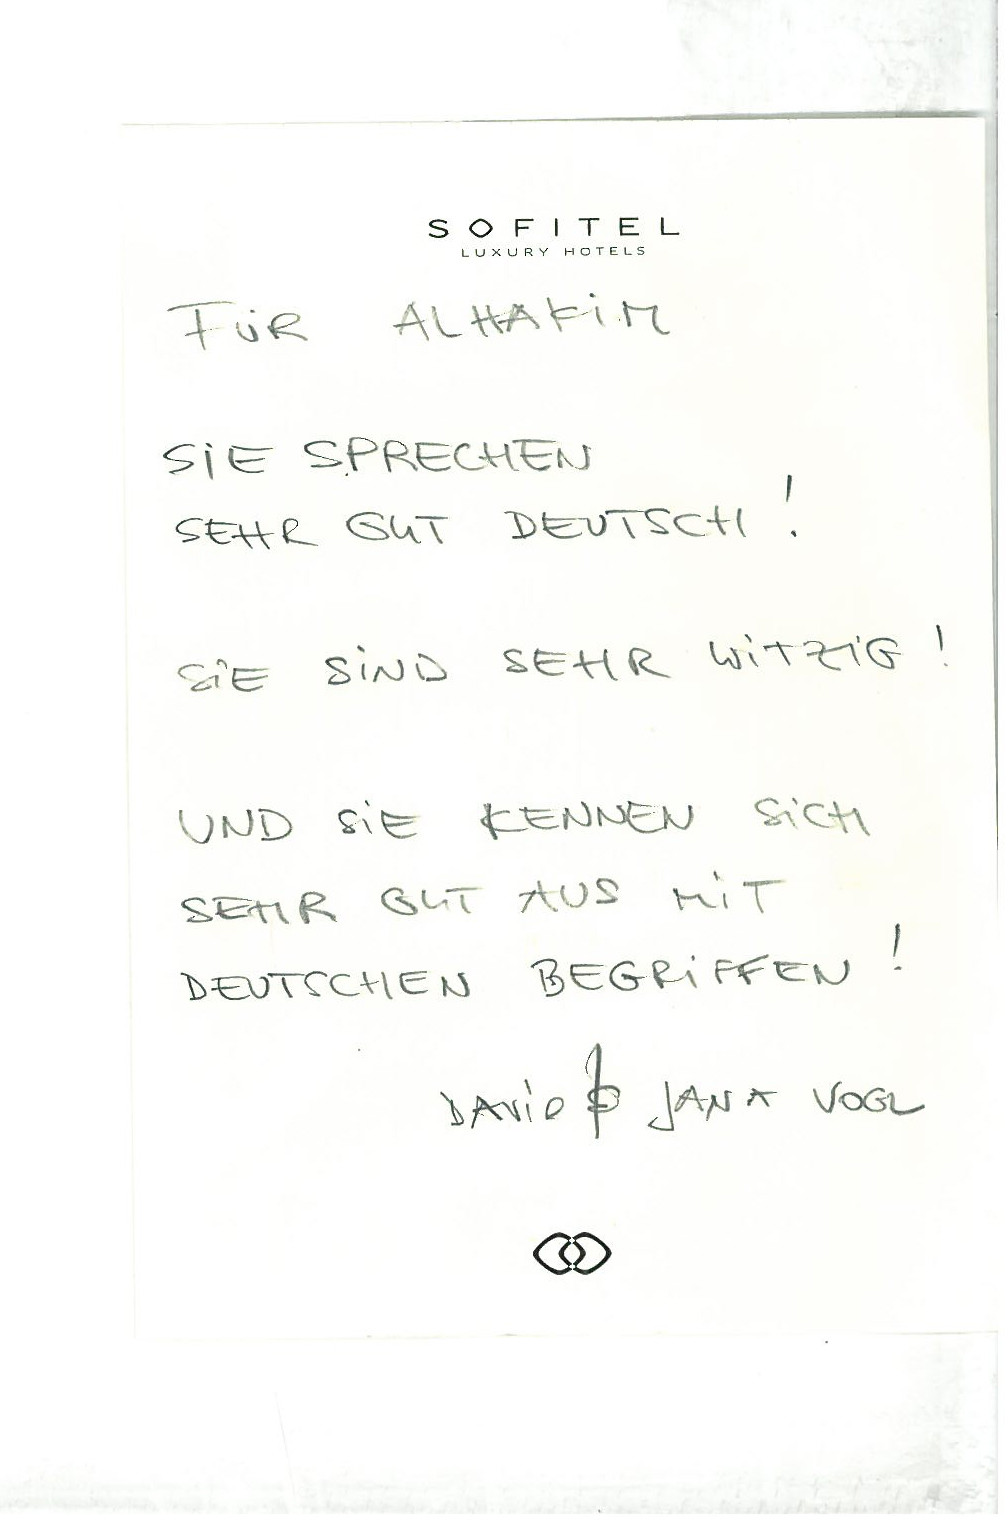 SOFITEL
LUXURY HOTELS
FÜR ALHAKIM
SIE SPRECHEN
SEHR GUT DEUTSCH!
SIE SIND SEHR WITZIG!
UND SIE KENNEN SICH
SEHR GUT AUS MIT
DEUTSCHEN BEGRIFFEN!
DAVID & JANA VOGL